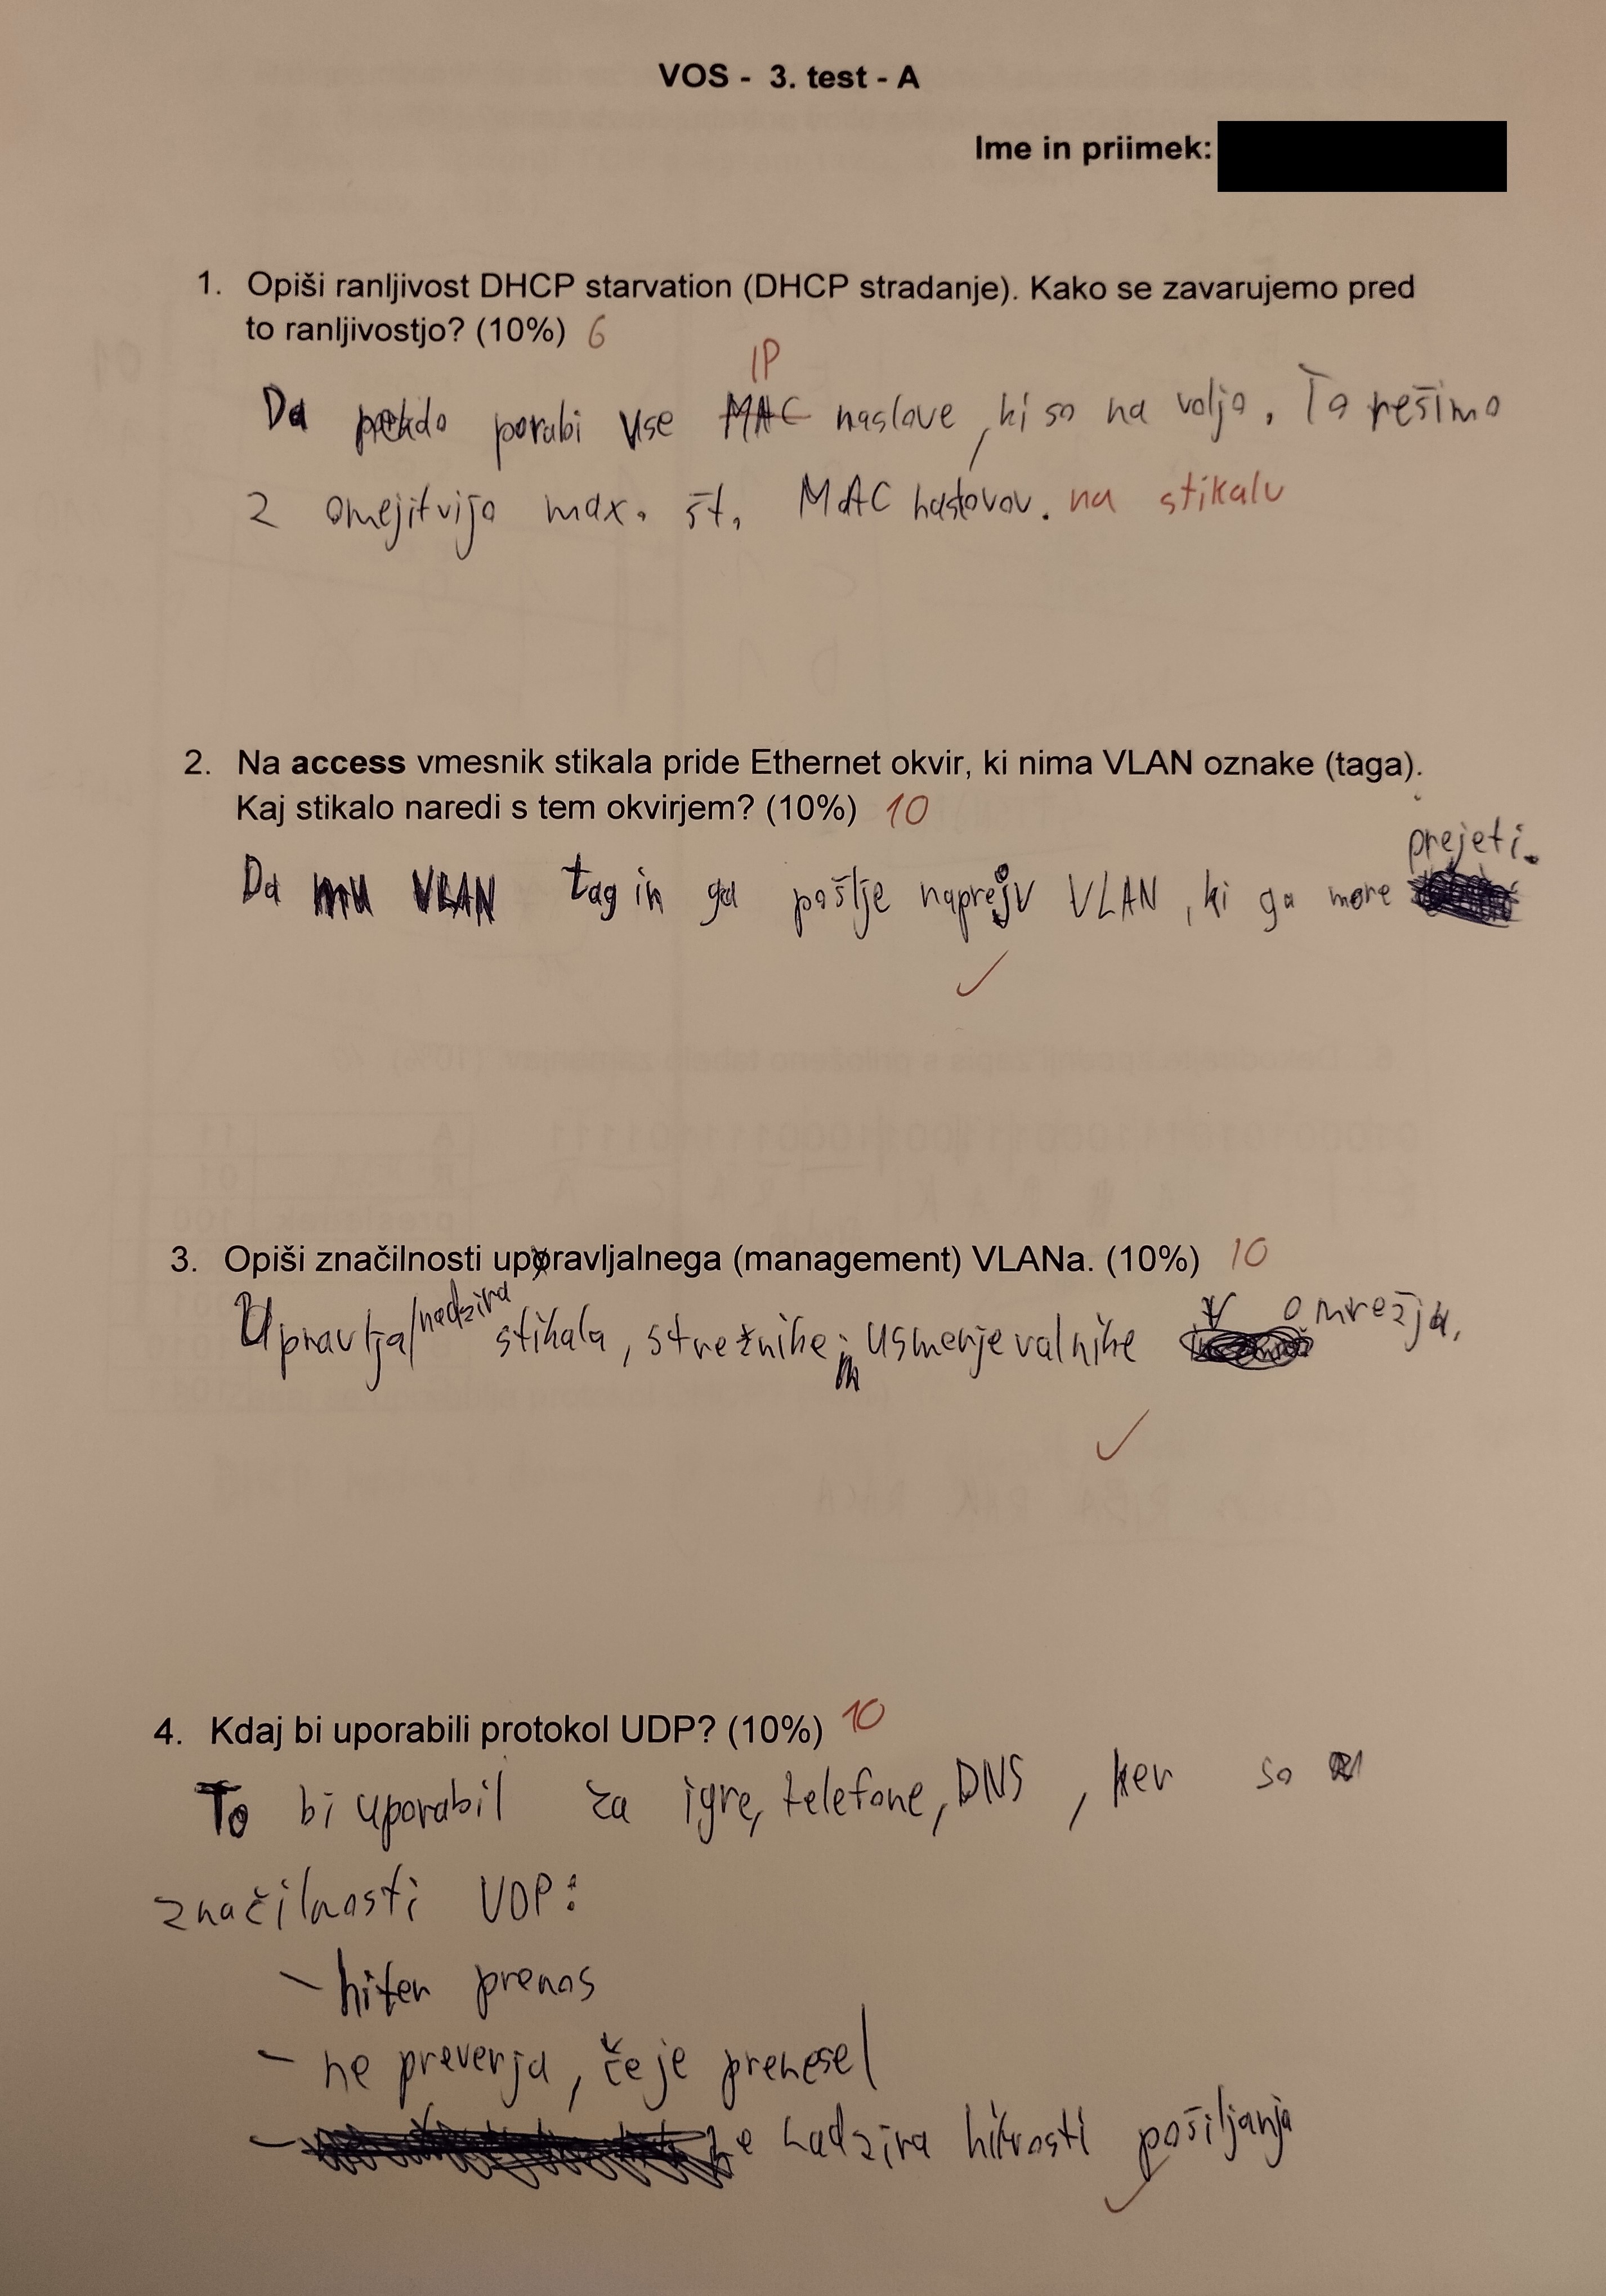 VOS - 3. test - A
Ime in priimek:
1. Opiši ranljivost DHCP starvation (DHCP stradanje). Kako se zavarujemo pred
to ranljivostjo? (10%) 6
IP
Da porabi vse MAC naslove, ki so na voljo. To rešimo
z omejitvijo max. št. MAC naslovov. na stikalu
2. Na access vmesnik stikala pride Ethernet okvir, ki nima VLAN oznake (taga).
Kaj stikalo naredi s tem okvirjem? (10%) 10
prejeti.
Da mu VLAN tag in ga pošlje naprej v VLAN, ki ga more
3. Opiši značilnosti upravljalnega (management) VLANa. (10%) 10
Upravlja/nadzira stikala, strežnike in usmerjevalnike v omrežju.
4. Kdaj bi uporabili protokol UDP? (10%) 10
To bi uporabil za igre, telefone, DNS, ker so
značilnosti UDP:
- hiter prenos
- ne preverja, če je prenesel
- ne nadzira hitrosti pošiljanja